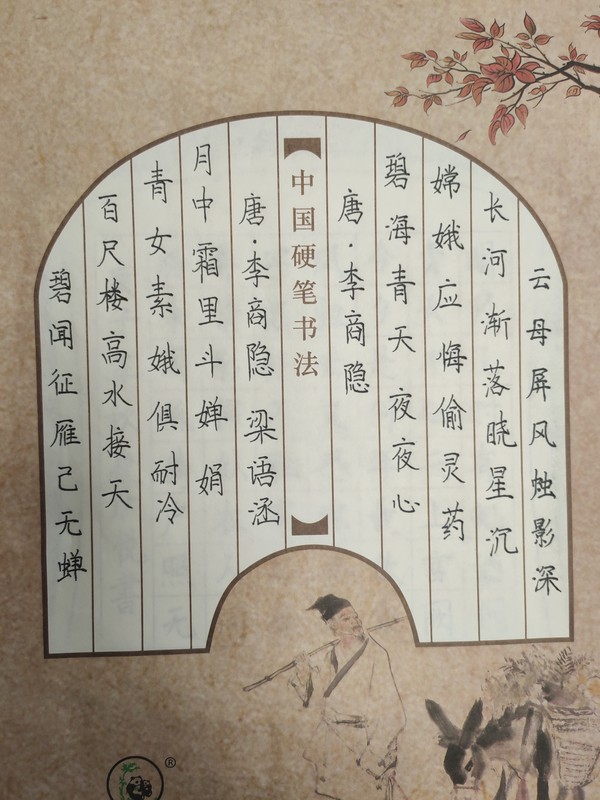 云母屏风烛影深
长河渐落晓星沉
嫦娥应悔偷灵药
碧海青天夜夜心
唐·李商隐
中国硬笔书法
碧闻征雁己无蝉
百尺楼高水接天
青女素娥俱耐冷
月中霜里斗婵娟
唐·李商隐 梁语涵
®